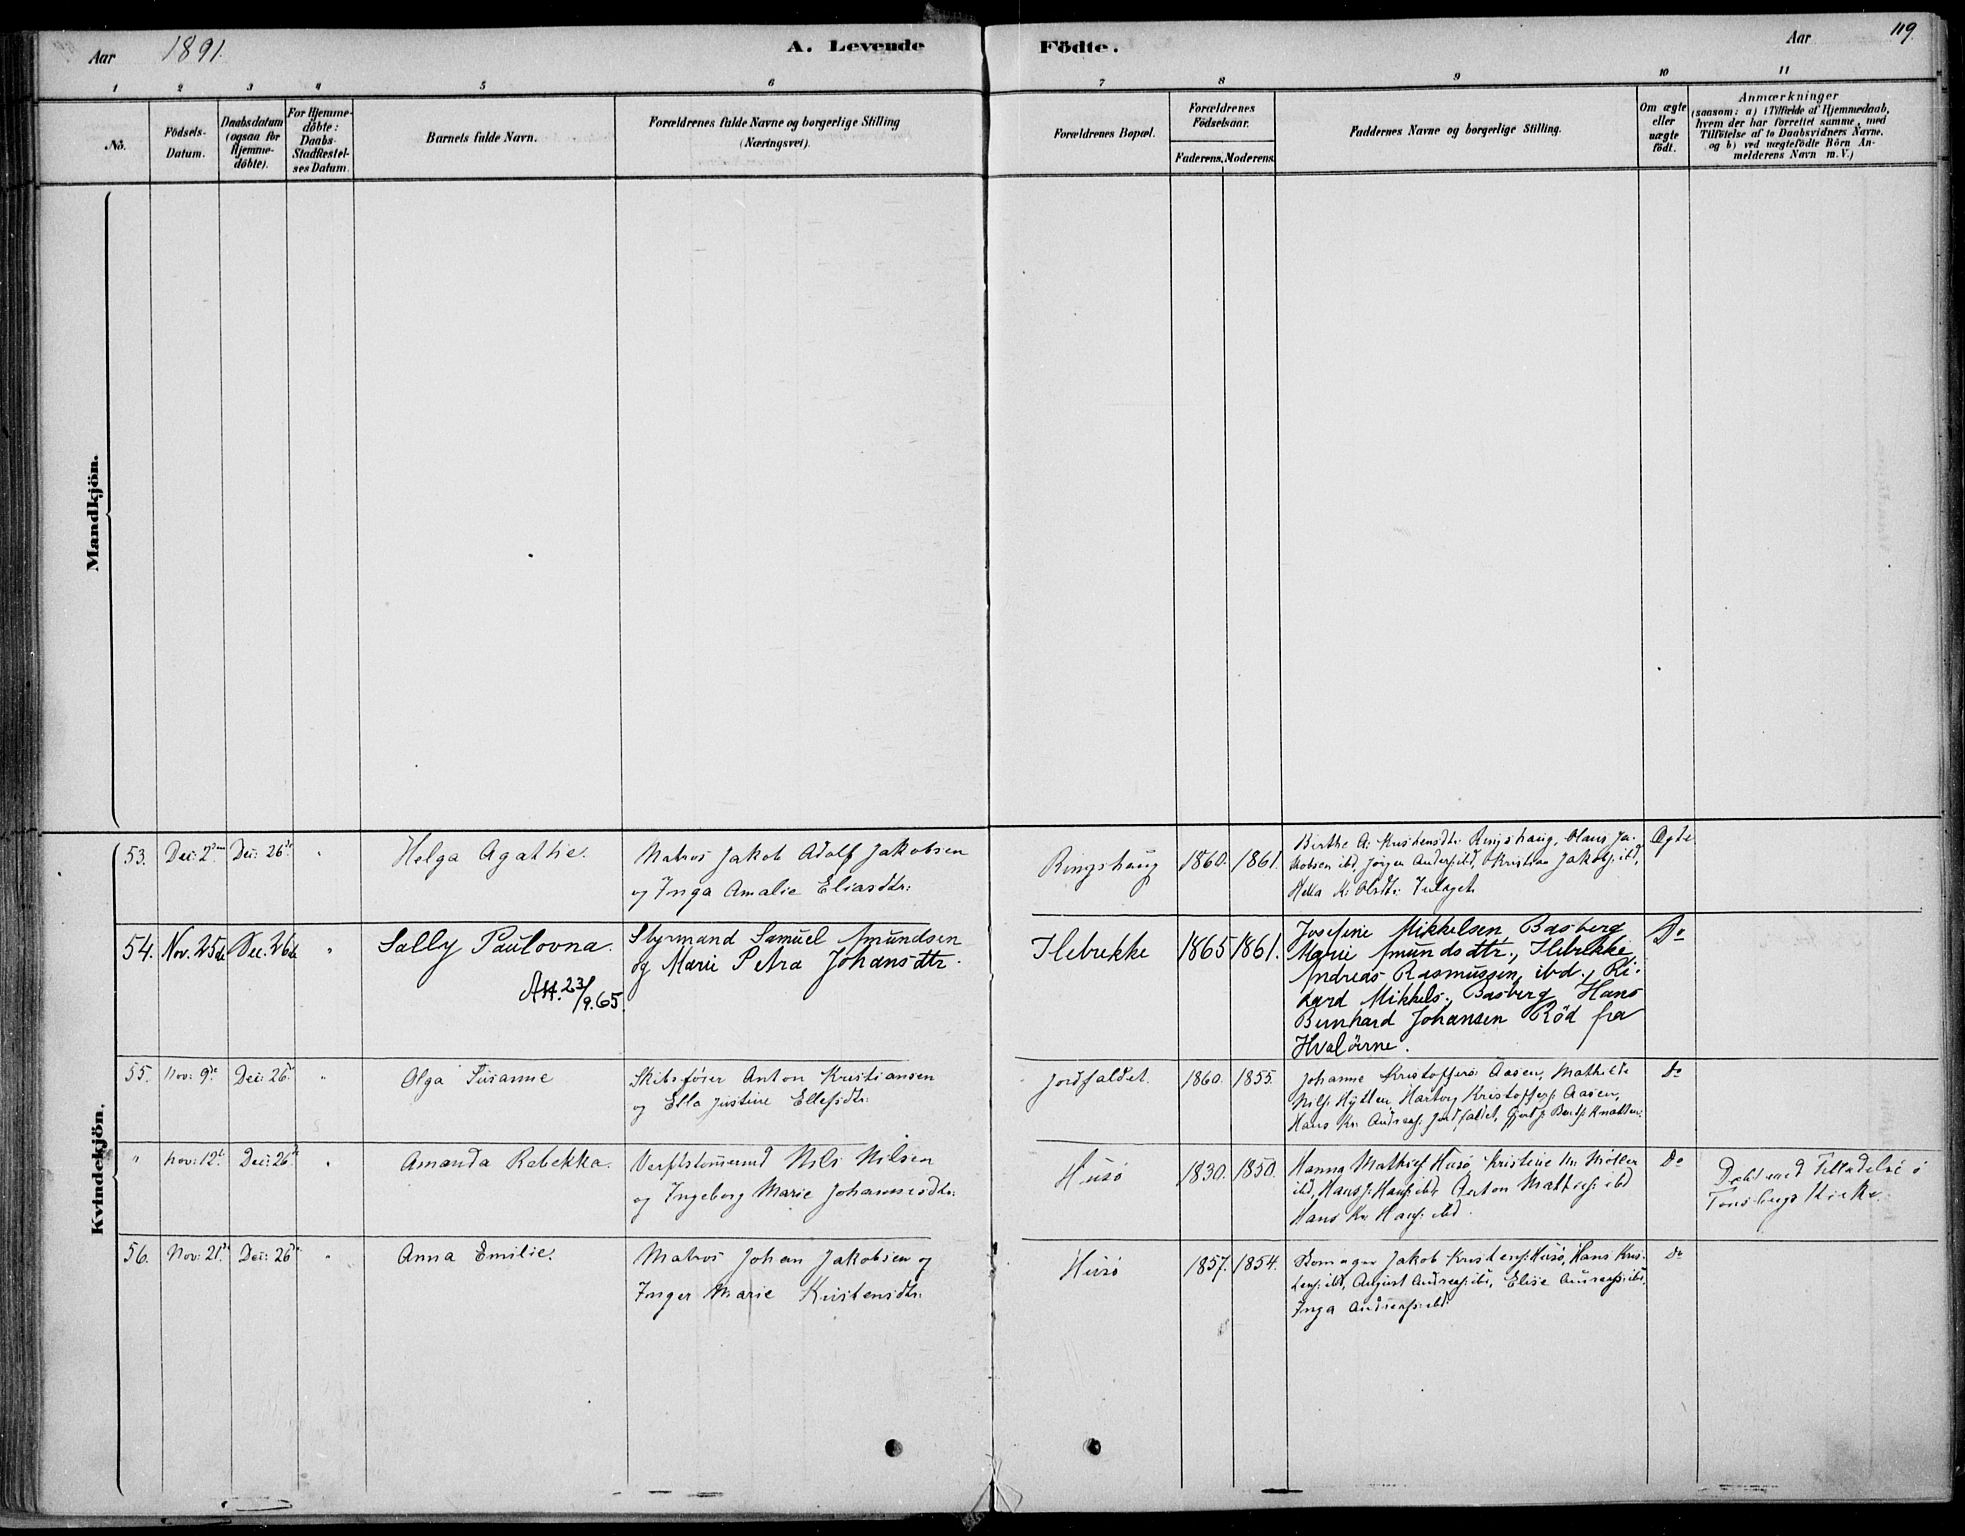 Aar 1891. A. Levende Födte. Aar 119.
1 2 3 4 5 6 7 8 9 10 11
No. Födsels-Datum. Daabsdatum (ogsaa for Hjemme-döbte). For Hjemme-döbte: Daabs-Stadfæstel-ses Datum. Barnets fulde Navn. Forældrenes fulde Navne og borgerlige Stilling (Næringsvei). Forældrenes Bopæl. Forældrenes Födselsaar. Faderens. Moderens. Faddernes Navne og borgerlige Stilling. Om ægte eller uægte födt. Anmærkninger
(saasom: a) i Tilfælde af Hjemmedaab,
hvem der har forrettet samme, med
Tilföielse af to Daabsvidners Navne.
og b) ved uægtefödte Börn An-
melderens Navn m. V.)
Mandkjön.
Kvindekjön.
53. Dec: 2den Dec: 26de " Helga Agathe. Matros Jakob Adolf Jakobsen
og Inga Amalie Eliasdtr:
Ringshaug 1860. 1861. Birthe A. Kristensdtr Ringshaug, Hans Ja-
kobsen ibd, Jörgen Anders: ibd, Kristian Jakobs: ibd,
Hella M: Olsdtr:
Ægte
54. Nov. 25de Dec. 26de " Sally Paulovna. Styrmand Samuel Amundsen
og Marie Petra Johansdtr.
Att. 23/9.65.
Ilebrekke 1865 1861. Josefine Mikkelsen Basberg
Marie Amundsdtr., Ilebrekke
Andreas Rasmussen, ibd., Ri-
kard Mikkels., Basberg Hans
Bernhard Johansen Röd fra
Hvalöerne.
Do
55. Nov: 9de Dec: 26de " Olga Susanne Skibsförer Anton Kristiansen
og Ella Justine Ellefsdtr:
Jordfaldet. 1860. 1855. Johanne Kristoffers: Aasen, Mathilde
Nils: Hytten Hartvig Kristoffers: Aasen,
Hans Kr. Andreas: Jordfaldet,
Do
" Nov: 12te Dec: 26de " Amanda Rebekka. Verftstömmermd Nils Nilsen
og Ingeborg Marie Johannesdtr:
Husö 1830. 1850. Hanna Mathias: Husö Kristine Möller
ibd, Hans J: Hans: ibd, Anton Mathias: ibd
Hans Kr. Hans: ibd.
Do Döbt med Tilladelse i
Tönsbergs Kirke.
56. Nov: 21de Dec: 26de " Anna Emilie. Matros Johan Jakobsen og
Inger Marie Kristensdtr:
Husö 1857. 1854. Jakob Kristens: Husö, Hans Kris-
tens: ibd, August Andreas: ibd, Elise Andreas: ibd,
Inga Andreas: ibd.
Do